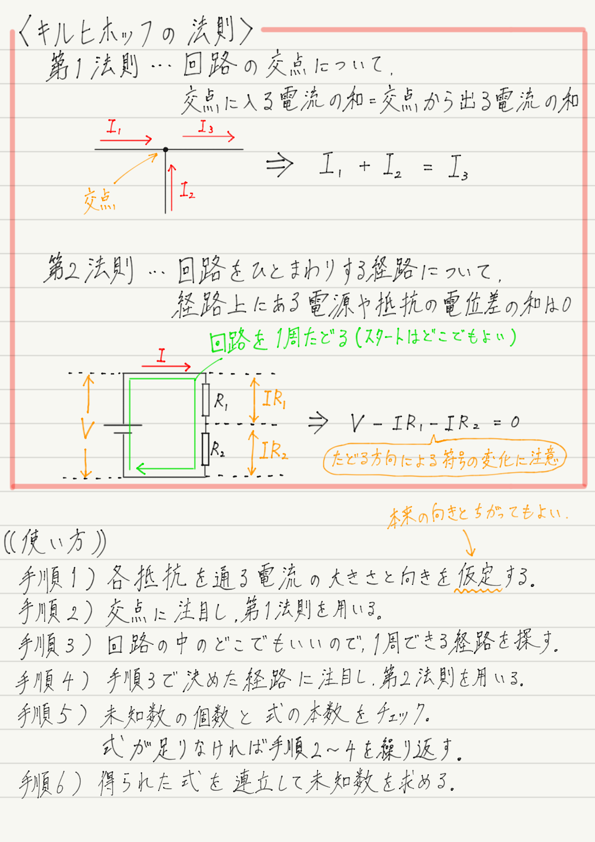 〈キルヒホッフの法則〉
第1法則…回路の交点について、
交点に入る電流の和=交点から出る電流の和
I₁ I₃
I₂
交点
⇒ I₁ + I₂ = I₃
第2法則…回路をひとまわりする経路について、
経路上にある電源や抵抗の電位差の和は0
回路を1周たどる(スタートはどこでもよい)
I
V R₁ IR₁
R₂ IR₂
⇒ V - IR₁ - IR₂ = 0
たどる方向による符号の変化に注意
本来の向きとちがってもよい.
((使い方))
手順1) 各抵抗を通る電流の大きさと向きを仮定する.
手順2) 交点に注目し、第1法則を用いる.
手順3) 回路の中のどこでもいいので、1周できる経路を探す.
手順4) 手順3で決めた経路に注目し、第2法則を用いる.
手順5) 未知数の個数と式の本数をチェック.
式が足りなければ手順2~4を繰り返す.
手順6) 得られた式を連立して未知数を求める.